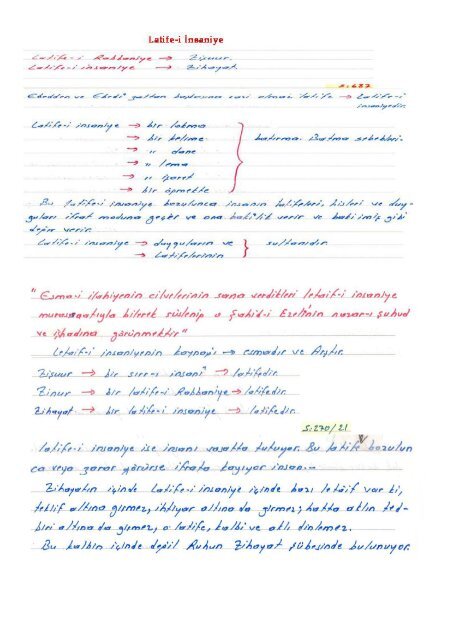 Latife-i İnsaniye
Latife-i Rabbaniye → Zişuur.
Latife-i insaniye → Zihayat.
S: 637
Ebedden ve Ebedî zattan başkasına razı olmaz latife → Latife-i
insaniyedir.
Latife-i insaniye → bir lokma
→ bir kelime
→ " dane
→ " lema
→ " işaret
→ bir öpmekte
batırma. Batma sebebleri.
Bu latife-i insaniye bozulunca insanın latifeleri, hisleri ve duy-
guları ifrat moduna geçer ve ona bakilik verir ve baki imiş gibi
değer verir.
Latife-i insaniye → duyguların ve
→ Latifelerinin
sultanıdır
"Esma-i ilahiyenin cilvelerinin sana verdikleri letaif-i insaniye
murassaatıyla bilerek süslenip o Şahid-i Ezelî'nin nazar-ı şuhud
ve işhadına görünmektir"
Letaif-i insaniyenin kaynağı → esmadır ve Arştır.
Zişuur → bir sırr-ı insanî → latifedir.
Zinur → bir latife-i Rabbaniye → latifedir.
Zihayat → bir latife-i insaniye → latifedir.
S: 270/21
latife-i insaniye ise insanı vasatta tutuyor. Bu latife bozulun
ca veya zarar görürse ifrata kayıyor insan...
Zihayatın içinde Latife-i insaniye içinde bazı letâif var ki,
teklif altına girmez, ihtiyar altına da girmez; hatta aklın ted-
biri altına da girmez, o latife, kalbi ve aklı dinlemez.
Bu kalbin içinde değil Ruhun Zihayat şubesinde bulunuyor.